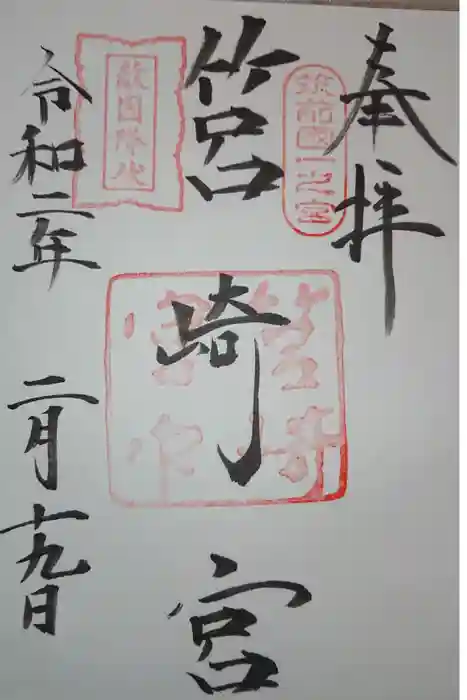 奉拝
筑前國一之宮
筥崎宮
敵国降伏
令和二年 二月十九日